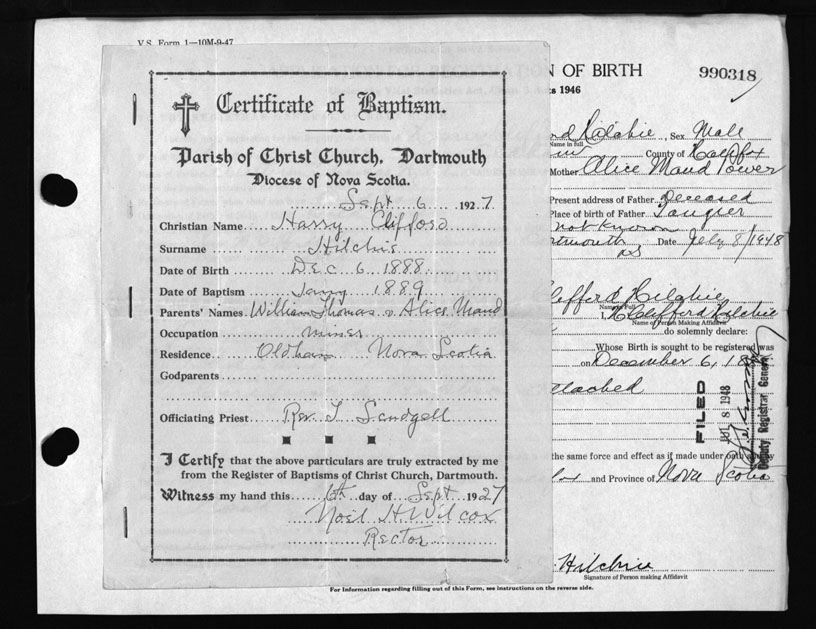 V.S. Form 1—10M-9-47
Certificate of Baptism.
Parish of Christ Church, Dartmouth
Diocese of Nova Scotia.
Sept 6 1927
Christian Name Harry Clifford
Surname Hilchie
Date of Birth Dec 6 1888
Date of Baptism Jany 1889
Parents' Names William Thomas & Alice Maud
Occupation miner
Residence Oldham Nova Scotia
Godparents
Officiating Priest Rev. J
I Certify that the above particulars are truly extracted by me
from the Register of Baptisms of Christ Church, Dartmouth.
Witness my hand this 6th day of Sept 1927
Noel H. Wilcox
Rector
N OF BIRTH
990318
1946
rd Hilchie, Sex Male
Name in full
County of Halifax
Mother Alice Maud Power
Present address of Father Deceased
Place of birth of Father Tangier
not known
rtmouth Date July 8/1948
NS
Clifford Hilchie
Name in Full
I, H Clifford Hilchie
Name of Person Making Affidavit
do solemnly declare:
Whose Birth is sought to be registered was
on December 6, 18
attached
FILED
JUL 8 1948
Deputy Registrar General
the same force and effect as if made under oath
fax and Province of Nova Scotia
Hilchie
Signature of Person making Affidavit
For Information regarding filling out of this Form, see instructions on the reverse side.